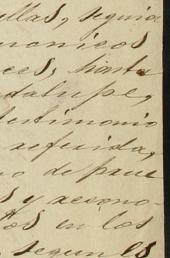 ellas, seguia
monicos
ces, hasta
dalupe,
testimonio
referida,
no de prue
s y recono-
tos en los
segun les